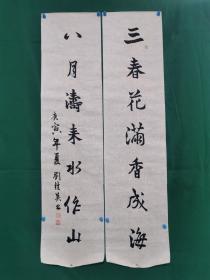 三春花滿香成海
八月濤来水作山
庚寅年夏劉